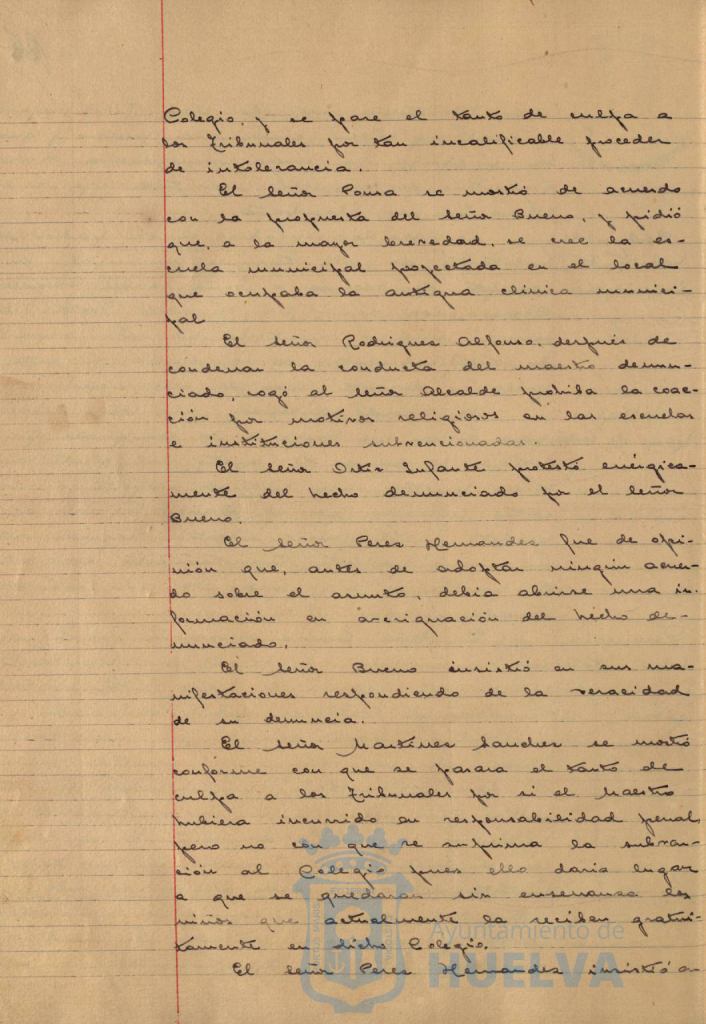 Colegio, y se pase el tanto de culpa a
los Tribunales por tan incalificable proceder
de intolerancia.
El Señor Ponsa se mostró de acuerdo
con la propuesta del Señor Bueno, y pidió
que, a la mayor brevedad, se cree la es-
cuela municipal proyectada en el local
que ocupaba la antigua clínica munici-
pal
El Señor Rodriguez Alfonso, después de
condenar la conducta del maestro denun-
ciado, rogó al Señor Alcalde prohiba la coac-
ción por motivos religiosos en las escuelas
e instituciones subvencionadas.
El Señor Ortiz Infante protestó enérgica-
mente del hecho denunciado por el Señor
Bueno.
El Señor Perez Hernandez fue de opi-
nión que, antes de adoptar ningún acuer-
do sobre el asunto, debia abrirse una in-
formación en averiguación del hecho de-
nunciado.
El Señor Bueno insistió en sus ma-
nifestaciones respondiendo de la veracidad
de su denuncia.
El Señor Martinez Sanchez se mostró
conforme con que se pasara el tanto de
culpa a los Tribunales por si el Maestro
hubiera incurrido en responsabilidad penal
pero no con que se suprima la subven-
ción al Colegio pues ello daria lugar
a que se quedaran sin enseñanza los
niños que actualmente la reciben gratui-
tamente en dicho Colegio.
El Señor Perez Hernandez insistió a-
Ayuntamiento de
HUELVA